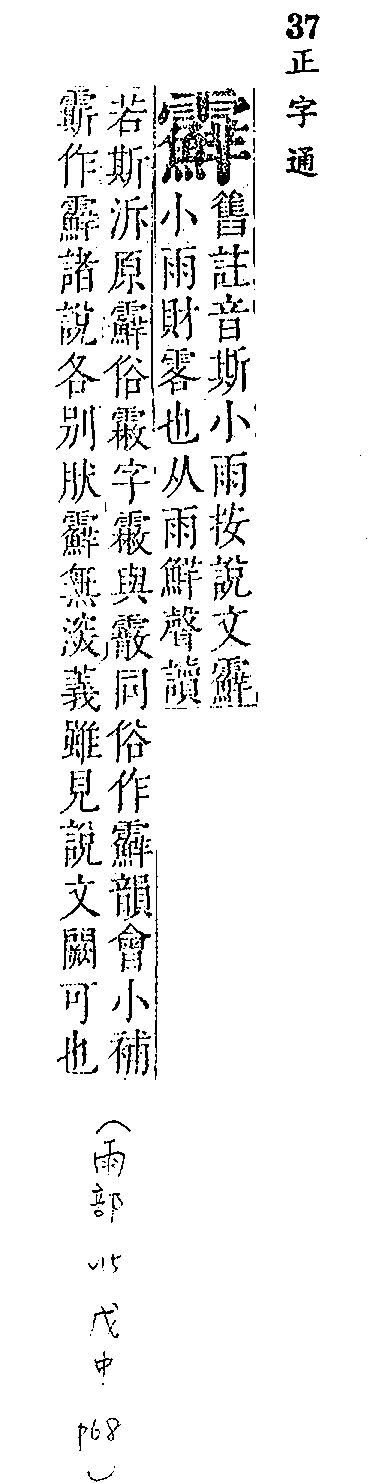 37 正字通
䨷 舊註音斯小雨按說文䨷
小雨財零也从雨鮮聲讀
若斯泝原䨷俗霰字霰與霰同俗作䨷韻會小補
作䨷諸說各別肰䨷無㴱義雖見說文闕可也
(雨部 v15 戊中 p68)